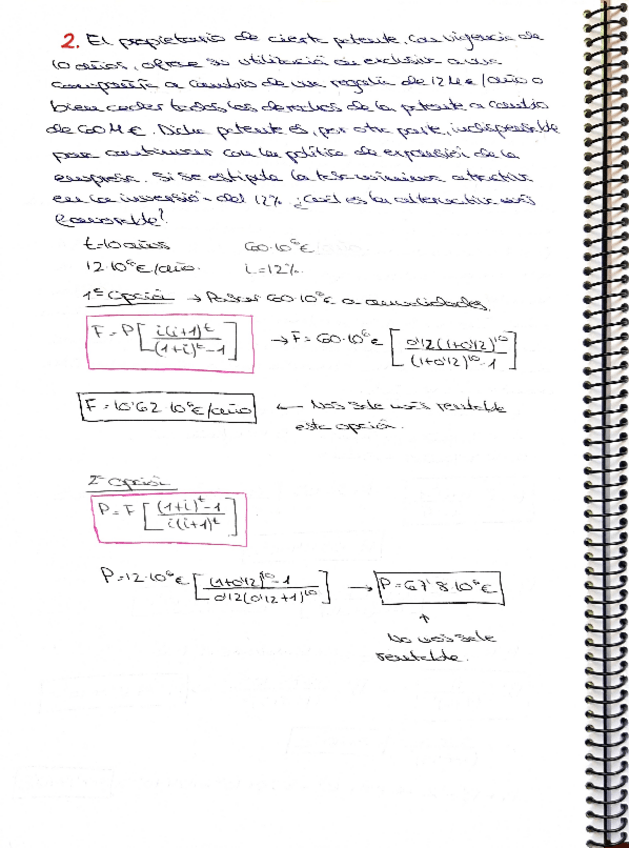 2. El propietario de cierta patente, con vigencia de
10 años, ofrece su utilización en exclusiva a una
compañía a cambio de una regalía de 12 M€/año o
bien ceder todos los derechos de la patente a cambio
de 60 M€. Dicha patente es, por otra parte, indispensable
para continuar con la política de expansión de la
empresa. Si se estipula la tasa mínima atractiva
en la inversión del 12% ¿Cuál es la alternativa más
favorable?
t=10 años 60·10⁶€
12·10⁶€/año. i=12%
1ª Opción → Pasar 60·10⁶€ a anualidades.
F = P[i(i+1)^t / (1+i)^t-1] → F = 60·10⁶€ [0'12(1+0'12)^10 / (1+0'12)^10-1]
F = 10'62 10⁶€/año ← Nos sale más rentable
esta opción.
2ª Opción
P = F[(1+i)^t-1 / i(i+1)^t]
P=12·10⁶€[(1+0'12)^10-1 / 0'12(0'12+1)^10] → P=67'8·10⁶€
↑
No nos sale
rentable.